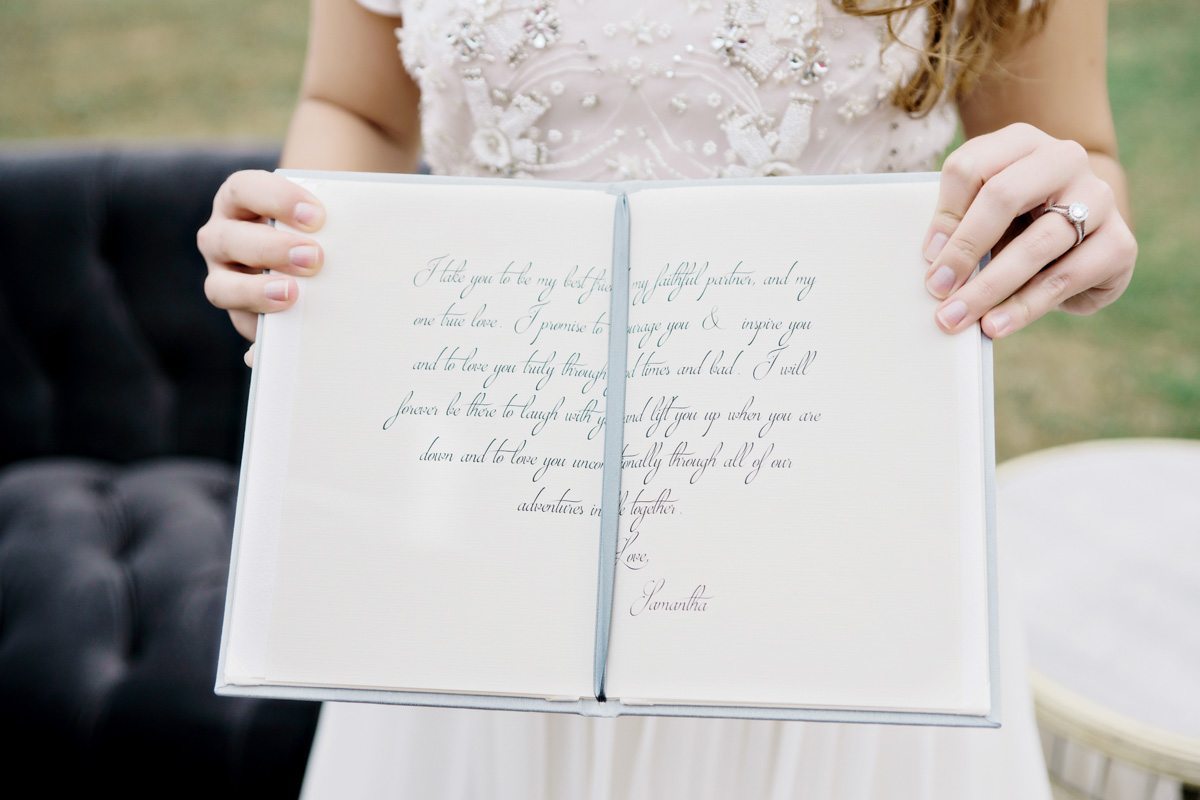 I take you to be my best frie my faithful partner, and my
one true love. I promise to urage you & inspire you
and to love you truly through d times and bad. I will
forever be there to laugh with y and lift you up when you are
down and to love you uncon tionally through all of our
adventures in fe together.
Love,
Samantha